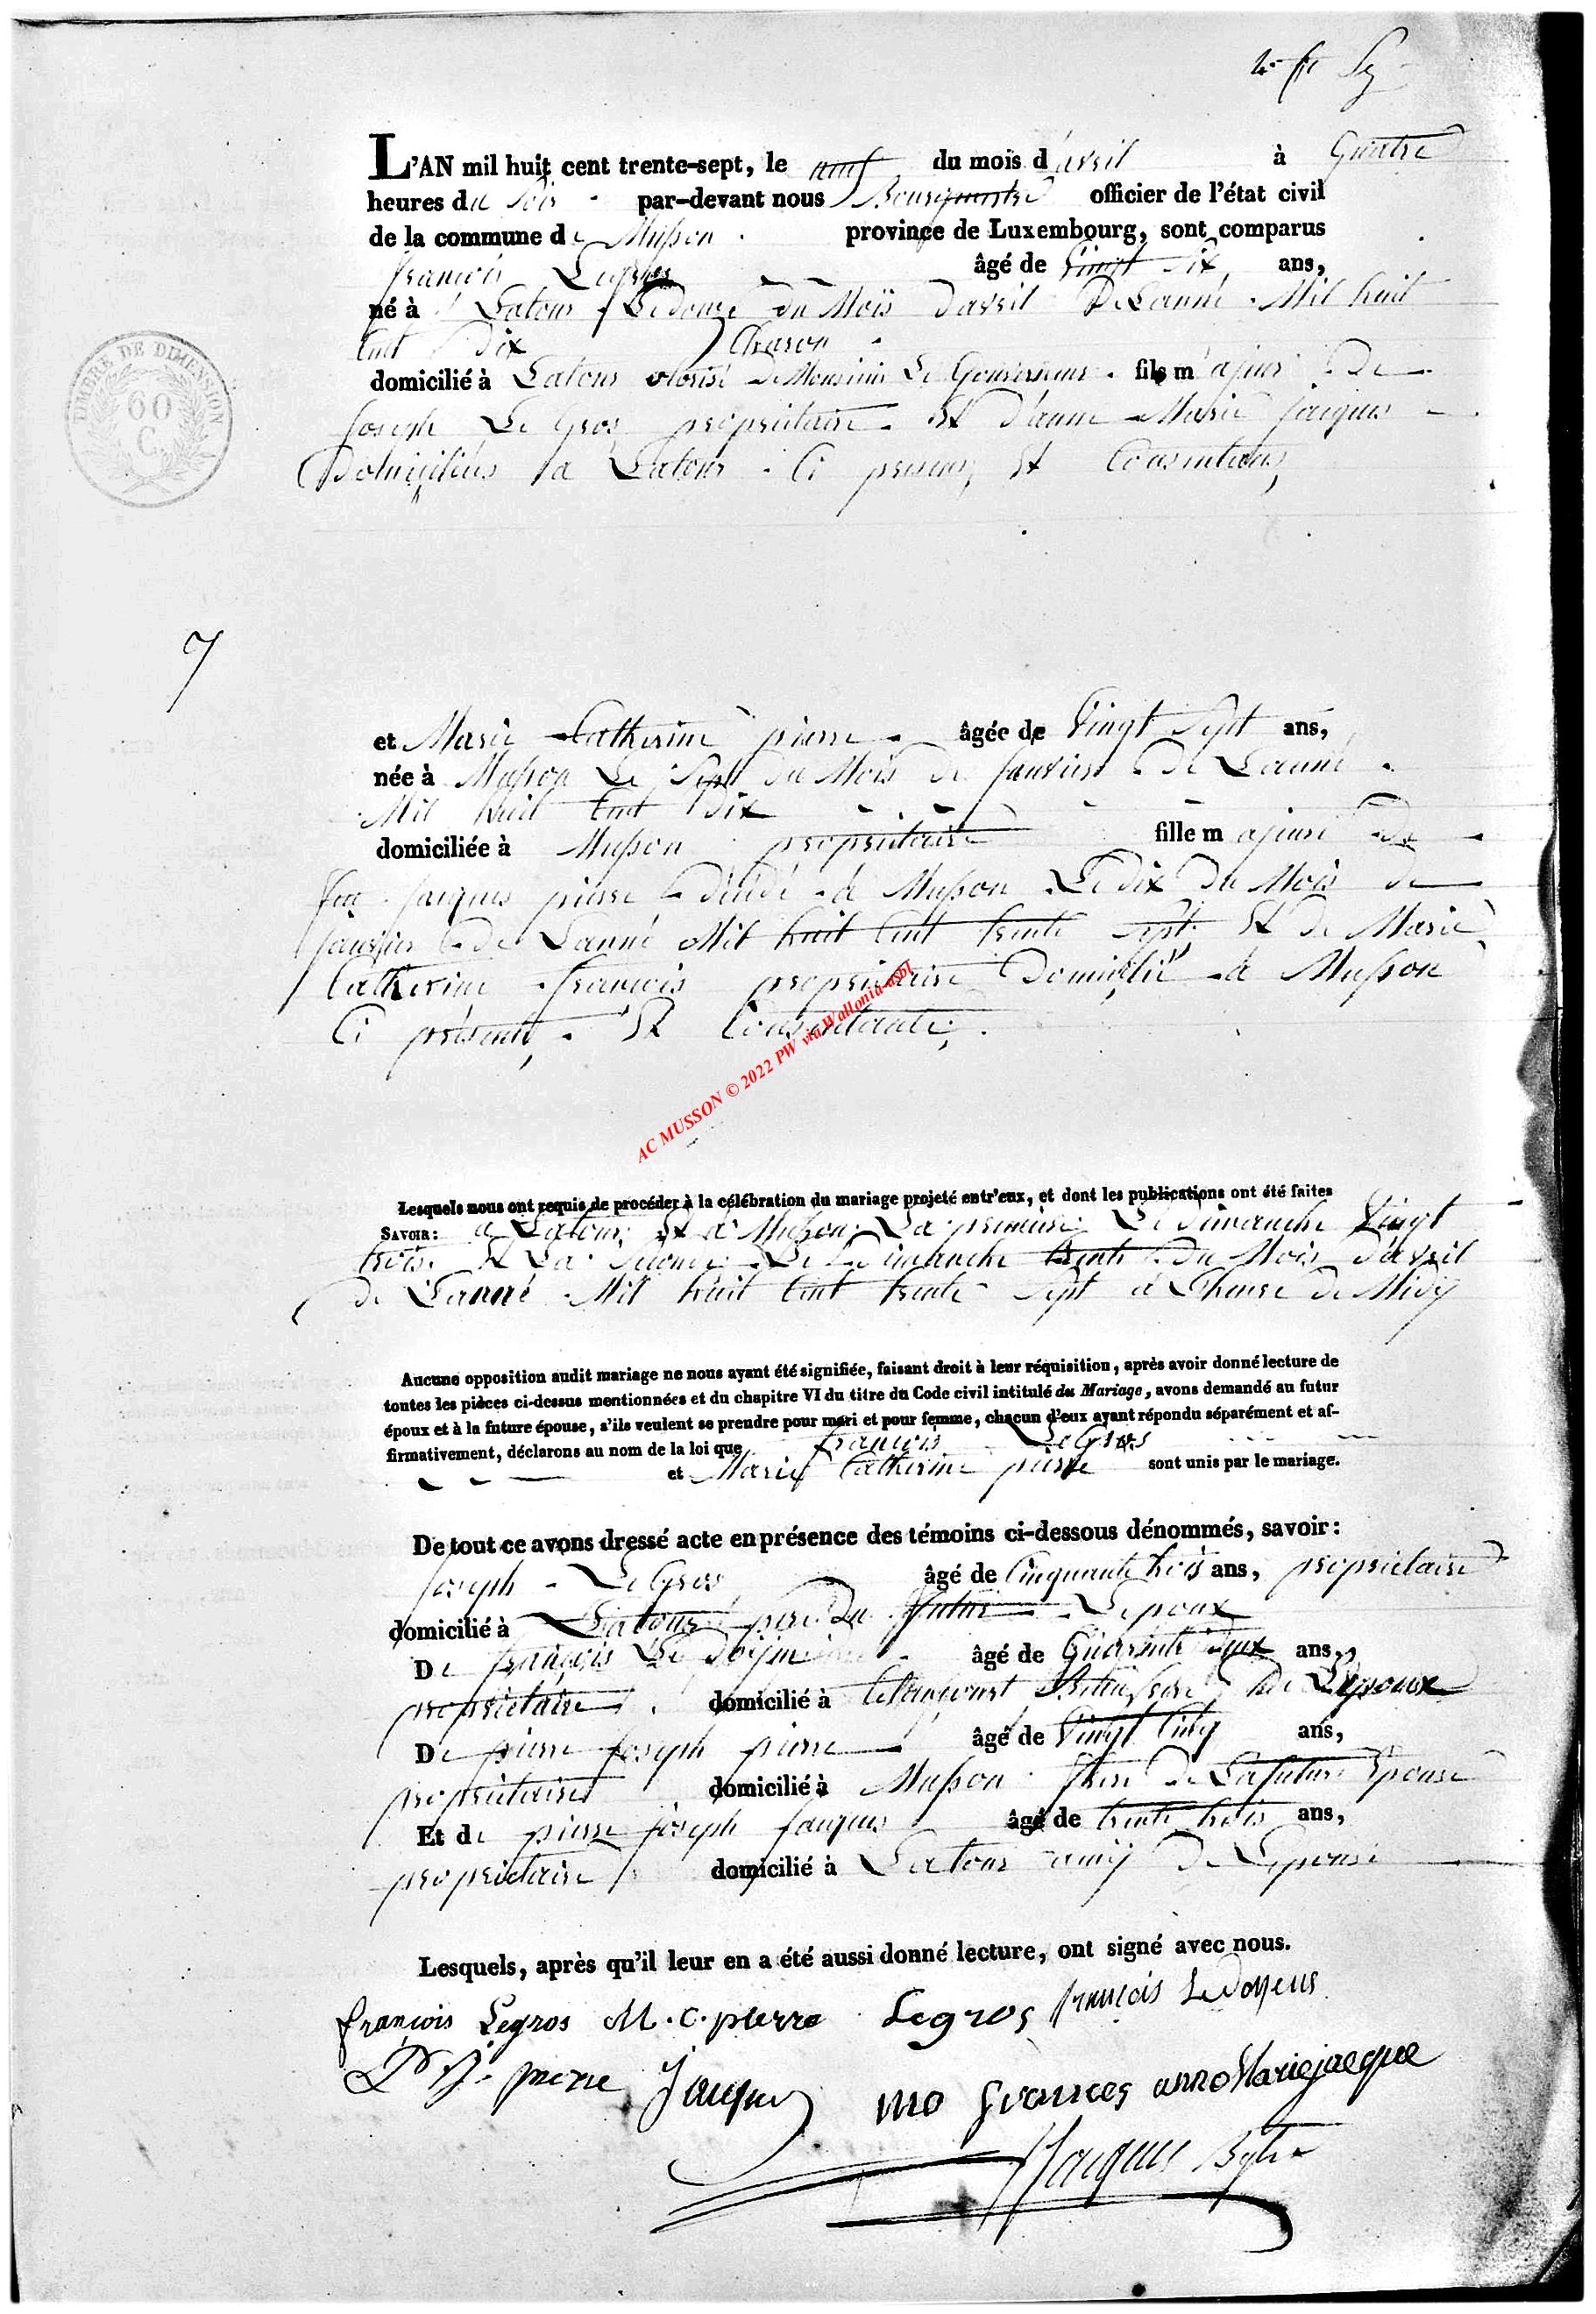 L'AN mil huit cent trente-sept, le neuf du mois d'avril à Quatre
heures du Soir par-devant nous Bourguestre officier de l'état civil
de la commune de Musson province de Luxembourg, sont comparus
françois Legros âgé de Vingt Six ans,
né à Latour Le douze du Mois d'avril De Lanné Mil huit
Cent Dix Charon
domicilié à Latour otorisé De Monsieur Le Gouverneur fils majeur De
Joseph Le Gros propriétaire Et d'anne Marie jacques
Domiciliés a Latour Ci présens Et Consentans
TIMBRE DE DIMENSION
60
C.
7
et Marie Catherine pierre âgée de Vingt Sept ans,
née à Musson Le Sept du Mois de Janvier de Lanné
Mil huit Cent Dix
domiciliée à Musson propriétaire fille majeure De
feu Jacques pierre décédé à Musson Le dix Du Mois de
Janvier de Lanné Mil huit Cent trente Sept Et De Marie
Catherine françois propriétaire Domicilié à Musson
Ci présente Et Consentante
AC MUSSON © 2022 PW via Wallonia-asbl
Lesquels nous ont requis de procéder à la célébration du mariage projeté entr'eux, et dont les publications ont été faites
SAVOIR: a Latour Et à Musson La premiere Le Dimanche Vingt
trois Et La Seconde Le Dimanche trente Du Mois d'avril
De L'anné Mil huit Cent trente Sept à L'heure De Midy
Aucune opposition audit mariage ne nous ayant été signifiée, faisant droit à leur réquisition, après avoir donné lecture de
toutes les pièces ci-dessus mentionnées et du chapitre VI du titre du Code civil intitulé du Mariage, avons demandé au futur
époux et à la future épouse, s'ils veulent se prendre pour mari et pour femme, chacun d'eux ayant répondu séparément et af-
firmativement, déclarons au nom de la loi que françois LeGros
et Marie Catherine pierre sont unis par le mariage.
De tout ce avons dressé acte en présence des témoins ci-dessous dénommés, savoir:
Joseph LeGros âgé de Cinquante trois ans, propriétaire
domicilié à Latour père Du futur Lepoux
De françois Le Doijen âgé de Quarante Deux ans,
propriétaire domicilié à De L'epoux
De pierre Joseph pierre âgé de Vingt Cinq ans,
propriétaire domicilié à Musson frere De La future Epouse
Et de pierre joseph Jacques âgé de trente trois ans,
propriétaire domicilié à Latour amij De Lepouse
Lesquels, après qu'il leur en a été aussi donné lecture, ont signé avec nous.
françois Legros M. C. pierre Legros françois Ledoyens
P. J. pierre Jacques mc francoes anne Marie jacque
Jacques Bgtre